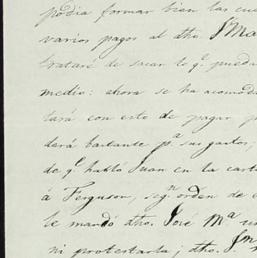 podia formar bien las cue
varios pagos al dho. Jn Ma
trataré de sacar lo q.e pueda
medio: ahora se ha acomoda
tará con esto de pagar p
dará bastante p.a sus gastos,
de q.e habló Juan en la carta
á Ferguson, seg.n orden de e
le mandó dho. José M.a
ni protestarla; dho. J.n